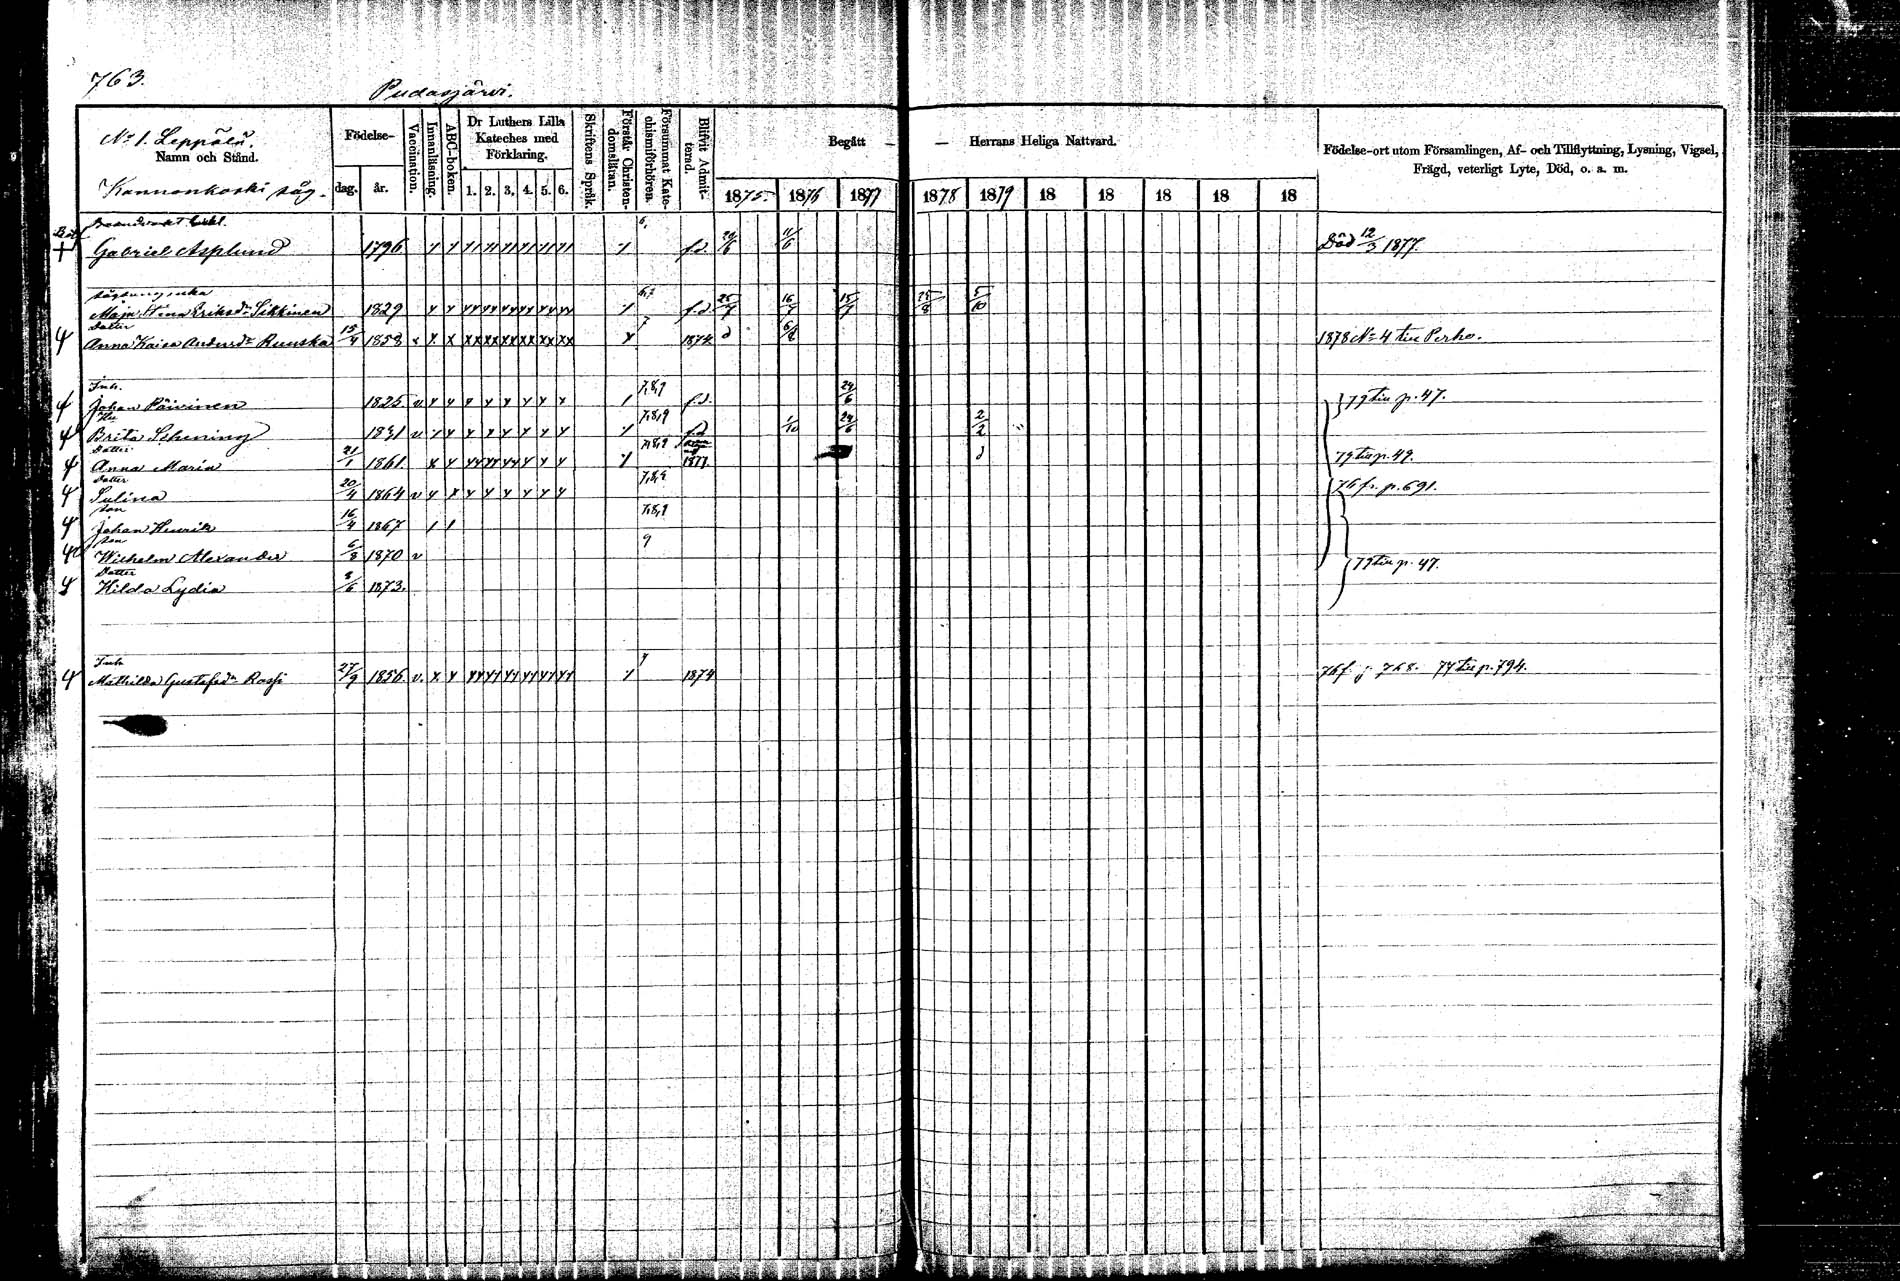 763.
Pudasjärvi.
No 1. Leppälä.
Namn och Stånd.
Kannonkoski såg.
Födelse-
dag. år.
Vaccination.
Innanläsning.
ABC-boken.
Dr Luthers Lilla Kateches med Förklaring.
1. 2. 3. 4. 5. 6.
Skriftens Språk.
Förstår Christendomsläran.
Försummat Katechismiförhören.
Blifvit Admitterad.
Begått — — Herrans Heliga Nattvard.
1875. 1876 1877 1878 1879 18 18 18 18 18
Födelse-ort utom Församlingen, Af- och Tillflyttning, Lysning, Vigsel,
Frägd, veterligt Lyte, Död, o. a. m.
Gabriel Asplund 1796 f.d. 11/6 Död 12/3 1877.
Maja Tina Eriksdr Sikkinen 1829 6,7 f.d. 25/7 16/7 15/7 25/8 5/10
Dotter
Anna Kaisa Andersdr Ruuska 15/4 1858 7 1874 1878 No 4 till Perho.
Inh.
Johan Päivinen 1825 v 7,8,9 f.d. 24/6 79 till p. 47.
Hu
Brita Schening 1831 v 7,8,9 f.d. 1/10 24/6 2/2
Dotter
Anna Maria 21/1 1861 7,8,9 1877 79 till p. 49.
Dotter
Sulina 20/4 1864 v 7,8,9 76 fr. p. 691.
son
Johan Henrik 16/4 1867 7,8,9
son
Wilhelm Alexander 6/8 1870 v 9 79 till p. 47.
Dotter
Hilda Lydia 1873.
Inh
Mathilda Gustafsdr Rossi 27/9 1856 v. 7 1874 76 f. p. 768. 77 till p. 794.